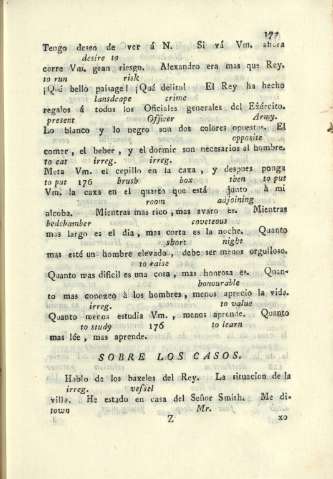 177
Tengo deseo de ver á N. Si vá Vm. ahora
desire to
corre Vm. gran riesgo. Alexandro era mas que Rey.
to run risk
¡Qué bello paisage! ¡Qué delito! El Rey ha hecho
landscape crime
regalos á todos los Oficiales generales del Exército.
present Officer Army.
Lo blanco y lo negro son dos colores opuestos. El
opposite
comer, el beber, y el dormir son necesarios al hombre.
to eat irreg. irreg.
Meta Vm. el cepillo en la caxa, y despues ponga
to put 176 brush box then to put
Vm. la caxa en el quarto que está junto á mi
room adjoining
alcoba. Mientras mas rico, mas avaro es. Mientras
bedchamber coveteous
mas largo es el dia, mas corta es la noche. Quanto
short night
mas esté un hombre elevado, debe ser menos orgulloso.
to raise
Quanto mas dificil es una cosa, mas honrosa es. Quan-
honourable
to mas conozco à los hombres, menos aprecio la vida.
irreg. to value
Quanto menos estudia Vm., menos aprende. Quanto
to study 176 to learn
mas lée, mas aprende.
SOBRE LOS CASOS.
Hablo de los baxeles del Rey. La situacion de la
irreg. vessel
villa. He estado en casa del Señor Smith. Me di-
town Mr.
Z xo